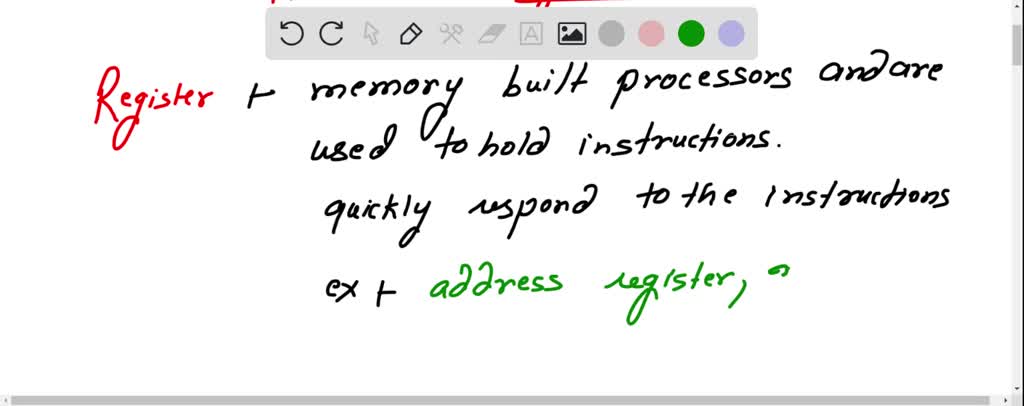 Register → memory built processors and are
used to hold instructions.
quickly respond to the instructions
ex → address register,